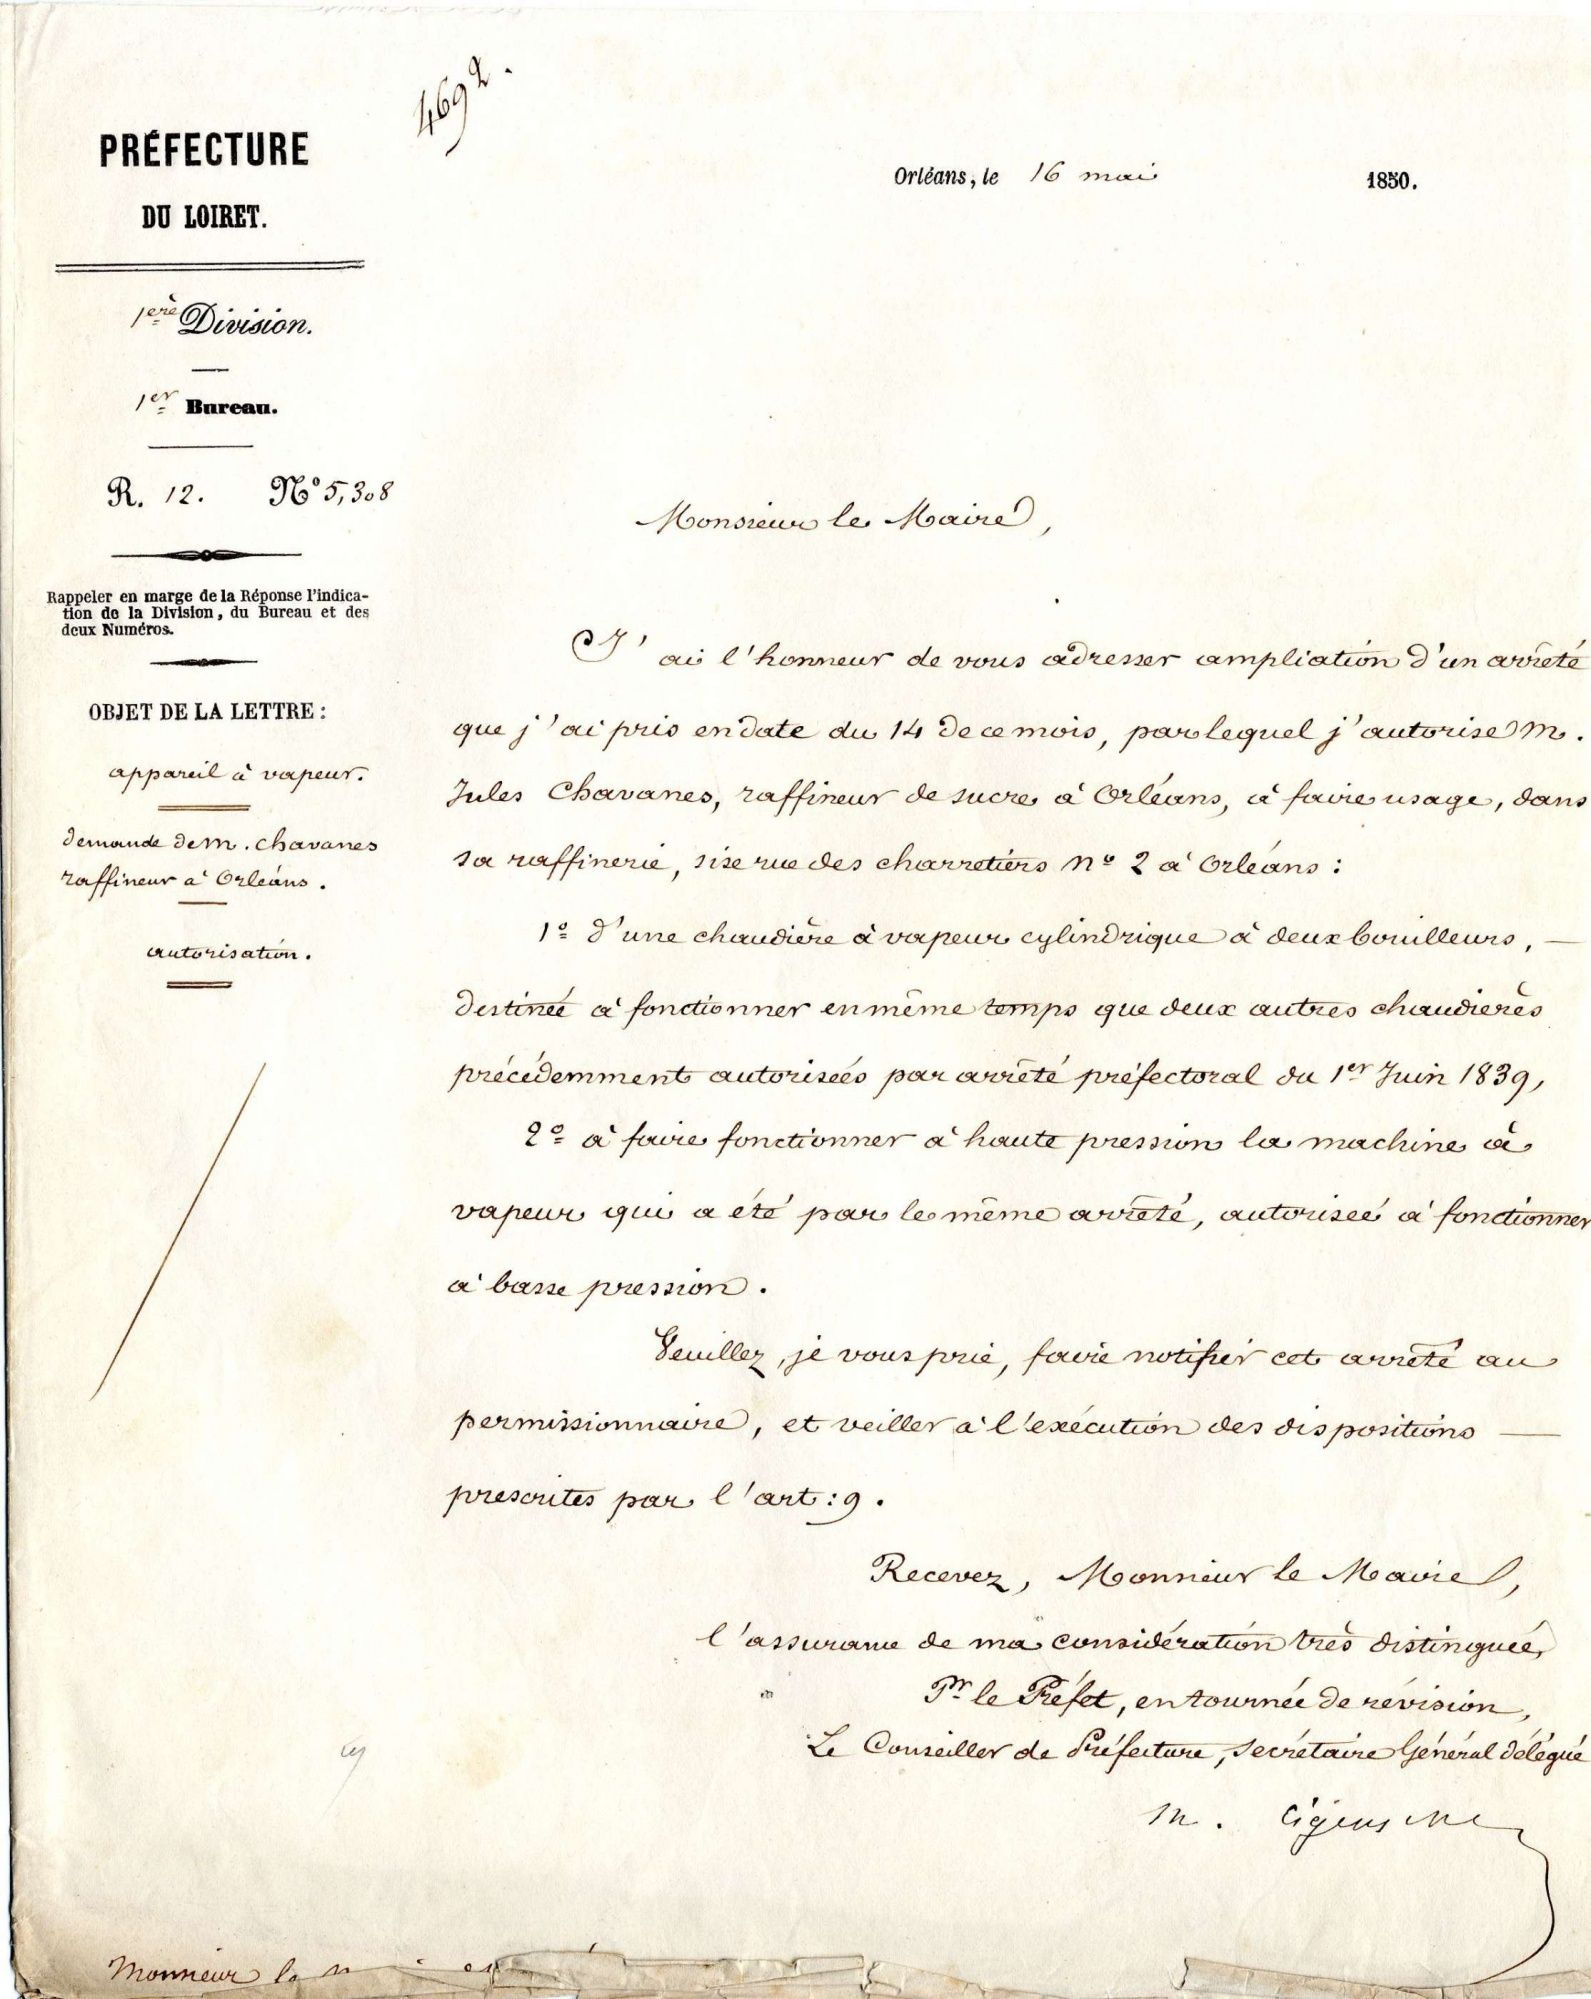 4692.
PRÉFECTURE
DU LOIRET.
1ère Division.
1er Bureau.
R. 12. No 5,308
Rappeler en marge de la Réponse l'indica-
tion de la Division, du Bureau et des
deux Numéros.
OBJET DE LA LETTRE :
appareil à vapeur.
demande de m. chavanes
raffineur à Orléans.
autorisation.
Orléans, le 16 mai 1850.
Monsieur le Maire,
J'ai l'honneur de vous adresser ampliation d'un arrêté
que j'ai pris en date du 14 de ce mois, par lequel j'autorise M.
Jules Chavanes, raffineur de sucre à Orléans, à faire usage, dans
sa raffinerie, sise rue des charretiers no 2 à Orléans :
1o d'une chaudière à vapeur cylindrique à deux bouilleurs, —
destinée à fonctionner en même temps que deux autres chaudières
précédemment autorisées par arrêté préfectoral du 1er Juin 1839,
2o à faire fonctionner à haute pression la machine à
vapeur qui a été par le même arrêté, autorisée à fonctionner
à basse pression.
Veuillez, je vous prie, faire notifier cet arrêté au
permissionnaire, et veiller à l'exécution des dispositions —
prescrites par l'art : 9.
Recevez, Monsieur le Maire,
l'assurance de ma considération très distinguée,
Pr le Préfet, en tournée de révision,
Le Conseiller de Préfecture, Secrétaire Général délégué
M.
Monsieur le